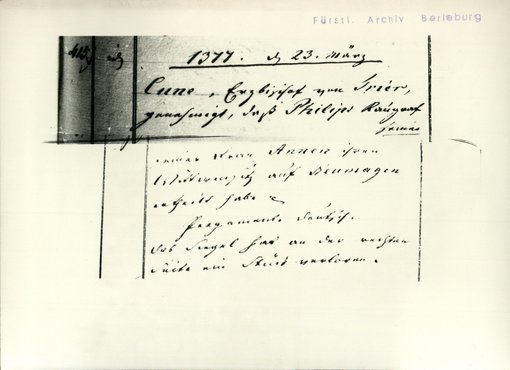 Fürstl. Archiv Berleburg
1377. d 23. März
Cuno, Erzbischof von Trier,
genehmigt, daß Philips Raugraf
seiner
seiner Frau Annen ihren
Wittwensitz auf Neumagen
ertheilt habe
Pergament. deutsch.
das Siegel hat an der rechten
Seite ein Stück verloren.